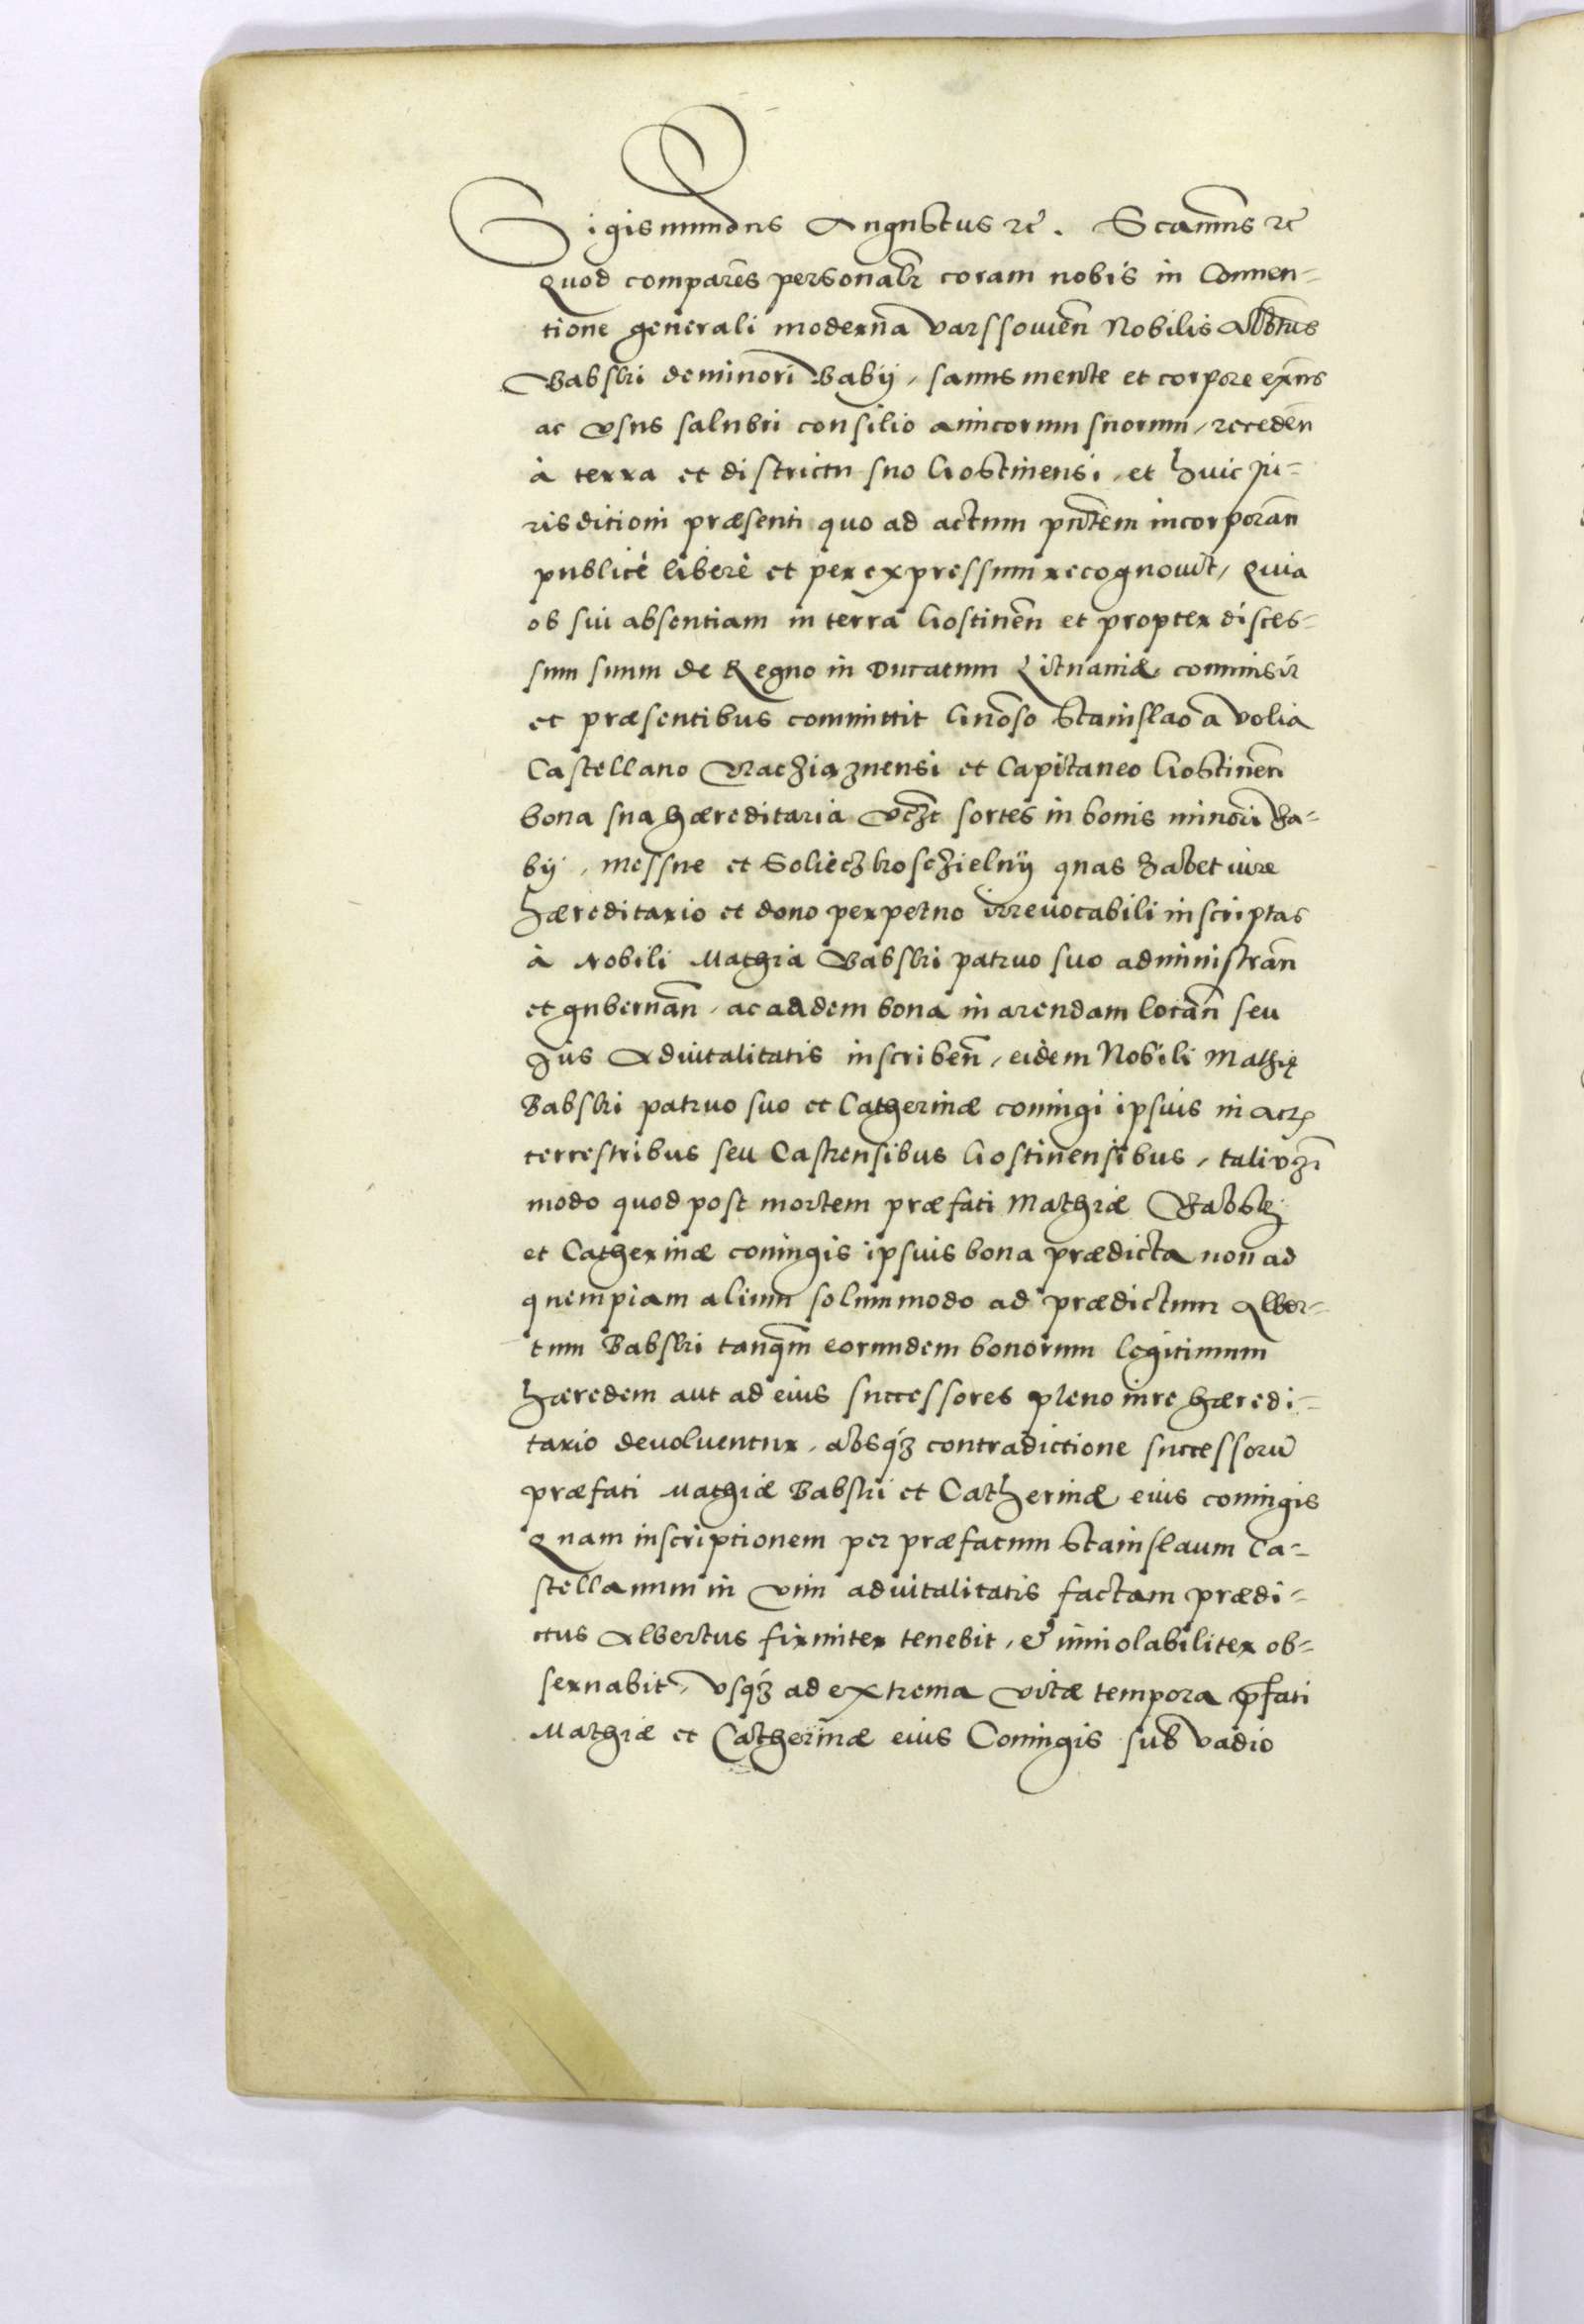 Sigismundus Augustus rc̄. Scamus rc̄
Quod comparēs personalr̄ coram nobis in Conuen-
tione generali modernā Varssouien̄ Nobilis Albt̄us
Babski de minori Babij, sanus mente et corpore exn̄s
ac vsus salubri consilio amicorum suorum, receden̄
à terra et districtu suo Gostinensi, et huic ju-
risditioni præsenti quo ad actum pn̄tem incorporan̄
publicè liberè et per expressum recognouit, Quia
ob sui absentiam in terra Gostinen̄ et propter disces-
sum suum de Regno in Ducatum Lituaniæ commisit
et præsentibus committit Gn̄oso Stanislao à Volia
Castellano Racziąznensi et Capitaneo Gostinen̄
bona sua hæreditaria vczt sortes in bonis minori Ba-
bij, Messne et Solieczkosczielnÿ quas habet iure
hæreditario et dono perpetuo irreuocabili inscriptas
à Nobili Mathia Babski patruo suo administran̄
et gubernan̄, ac eadem bona in arendam locan̄ seu
Jus Aduitalitatis inscriben̄, eidem Nobili Mathię
Babski patruo suo et Catherinæ coniugi ipsuis in actꝭ
terrestribus seu Castrensibus Gostinensibus, tali vꝫt
modo quod post mortem præfati Mathiæ Babskj
et Catherinæ coniugis ipsuis bona prædicta non ad
quempiam alium solummodo ad prædictum Alber-
tum Babski tanq̄m eorundem bonorum legitimum
hæredem aut ad eius successores pleno iure hæredi-
tario deuoluentur, absqꝫ contradictione successorū
præfati Mathiæ Babski et Catherinæ eius coniugis
Quam inscriptionem per præfatum Stanislaum Ca-
stellanum in vim aduitalitatis factam prædi-
ctus Albertus firmiter tenebit, & inuiolabiliter ob-
seruabit, vsqꝫ ad extrema vitæ tempora p̄fati
Mathiæ et Catherinæ eius Coniugis sub vadio